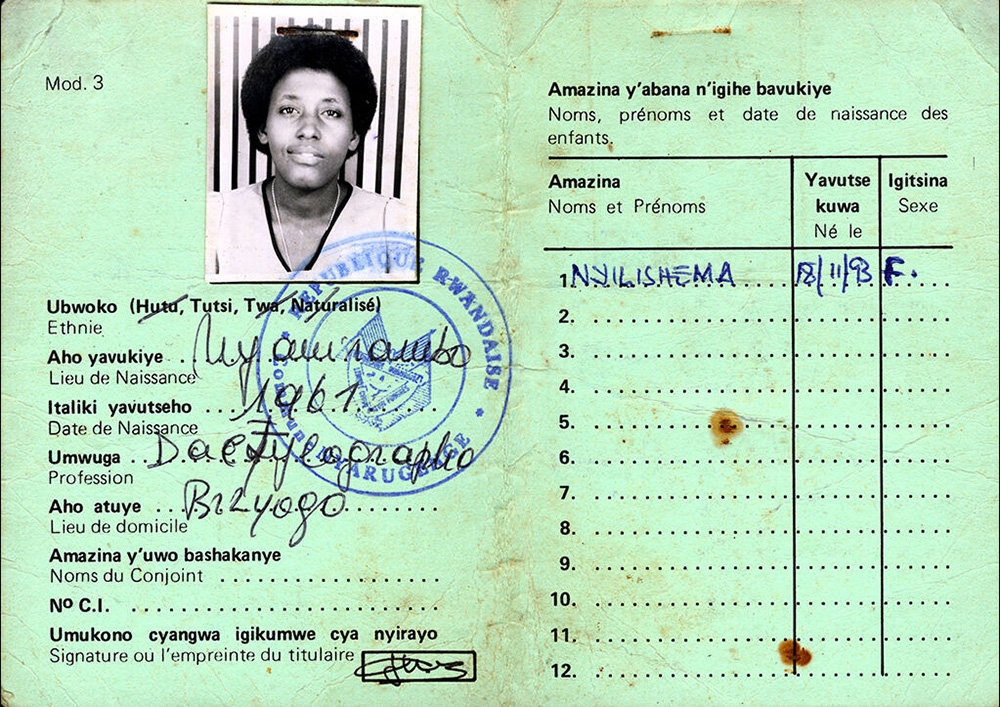 Mod. 3
Ubwoko (Hutu, Tutsi, Twa, Naturalisé)
Ethnie
Aho yavukiye Nyamirambo
Lieu de Naissance
Italiki yavutseho 1961
Date de Naissance
Umwuga Dactylographe
Profession
Aho atuye Biryogo
Lieu de domicile
Amazina y'uwo bashakanye
Noms du Conjoint
Nº C.I.
Umukono cyangwa igikumwe cya nyirayo
Signature ou l'empreinte du titulaire
REPUBLIQUE RWANDAISE
Commune NYARUGENGE
Amazina y'abana n'igihe bavukiye
Noms, prénoms et date de naissance des
enfants.
Amazina
Noms et Prénoms
Yavutse
kuwa
Né le
Igitsina
Sexe
1. NYILISHEMA 18/11/93 F.
2.
3.
4.
5.
6.
7.
8.
9.
10.
11.
12.